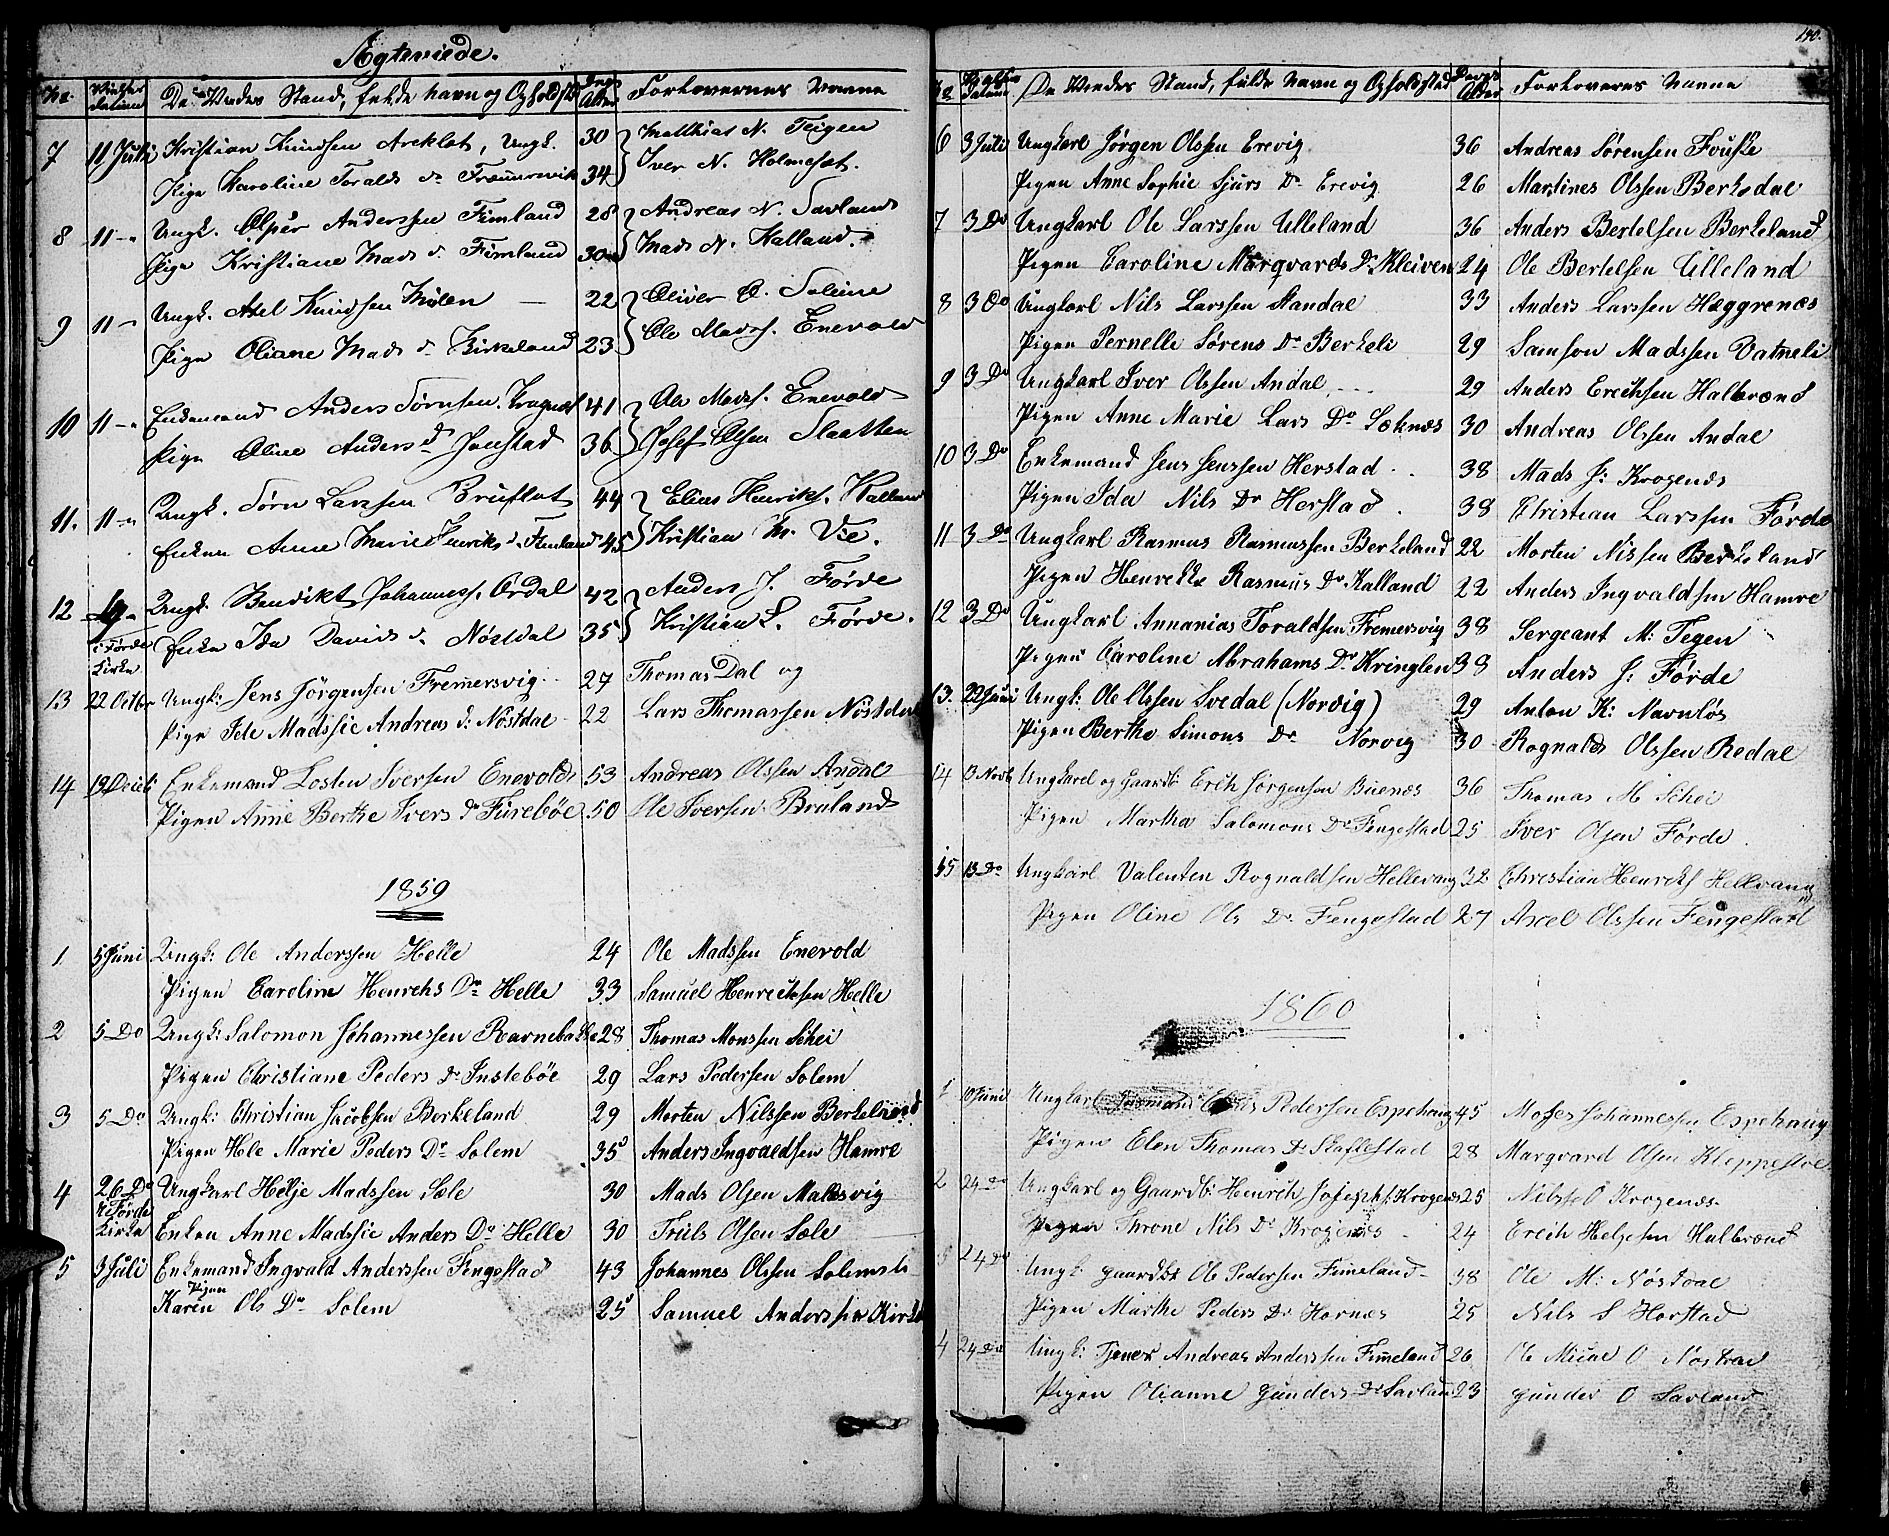 Ægteviede.
No. Vielses Datum De Viedes Stand, fulde Navn og Opholdst. Deres Alder Forlovernes Navne
7 11 Juli Kristian Knudsen Areklet, Ungk. 30 Matthias N. Teigen
Pige Karoline Toralds d. Fræmmersvik 34 Iver N. Holmeset.
8 11 — Ungk. Anderssen Fimland 28 Andreas N. Savland
Pige Kristiane Mads d. Fimland 30 Mads N. Halland.
9 11 — Ungk. Axel Knudsen Molen — 22 Oliver O. Soleime
Pige Oliane Mads d. Birkeland 23 Ole Madss. Enevold
10 11 — Enkemand Anders Sørnsen 41 Ole Madss. Enevold
Pige Oline Anders d. Jonstad 36 Josef Olsen Slaatten
11. 11 — Ungk. Sørn Larssen Bruflot 44 Elias Henriks. Kalland
Enken Anne Marie Henriks d. Fimland 45 Kristian M. Vie.
12 Ungk. Bendikt Johanness. Ordal 42 Anders J. Førde
i Førde Kirke Enke Ida Davids d. Nøstdal 35 Kristian L. Førde.
13 22 Octbr Ungk: Jens Jörgensen Fremersvig 27 Thomas Dal og
Pige Ide Madssie Andreas d: Nöstdal 22 Lars Thomassen Nöstdal
14 Enkemand Losten Iversen Enevold 53 Andreas Olssen Andal
Pigen Anne Berthe Ivers d. Furebøe 50 Ole Iversen Bruland
1859
1 5 Juni Ungk: Ole Anderssen Helle 24 Ole Madssen Enevold
Pigen Caroline Henrchs Dr Helle 33 Samuel Henrecksen Helle
2 5 Do Ungk: Salomon Johannessen Ravnebakke 28 Thomas Monssen Schei
Pigen Christiane Peders Dr Instebøe 29 Lars Pedersen Solem
3 5 Do Ungk: Christian Jacobsen Berkeland 29 Morten Nilssen Berkeland
Pigen Hele Marie Peders Dr Solem 35 Anders Ingvaldsen Hamre
4 26 Do Ungkarl Helje Madssen Sæle 30 Mads Olsen Malesvig
i Førde Kirke Enken Anne Madssie Anders Dr Helle 30 Truls Olsen Sæle
5 3 Juli Enkemand Ingvald Anderssen Fengestad 43 Johannes Olssen Solem
Pigen Karen Ols Dr Solem 25 Samuel Anderssen
140.
No Datum De Viedes Stand, fulde Navn og Opholdsted Deres Alder Forloveres Navne
6 3 Juli Ungkarl Jørgen Olssen Erevig 36 Andreas Sørensen Fouske
Pigen Anne Sophie Sjurs Dr Erevig 26 Martines Olssen Berksdal
7 3 Do Ungkarl Ole Larssen Ulleland 36 Anders Bertelsen Berkeland
Pigen Caroline Marqvards Dr Kleiven 24 Ole Bertelsen Ulleland
8 3 Do Ungkarl Nils Larssen Standal 33 Anders Larssen Heggrenæs
Pigen Pernelle Sørens Dr Berkeli 29 Samson Madssen Vatneli
9 3 Do Ungkarl Iver Olssen Andal 29 Anders Erecksen Halbrænd
Pigen Anne Marie Lars Dr Sæknæs 30 Andreas Olssen Andal
10 3 Do Enkemand Jens Jenssen Herstad 38 Mads J: Krogenæs
Pigen Ida Nils Dr Herstad 38 Christian Larssen Førde
11 3 Do Ungkarl Rasmus Rasmussen Berkeland 22 Morten Nilssen Berkeland
Pigen Henrekke Rasmus Dr Kalland 22 Anders Ingvaldsen Hamre
12 3 Do Ungkarl Annanias Toraldsen Fremersvig 38 Sergeant M: Tegen
Pigen Caroline Abrahams Dr Kringlen 38 Anders J: Førde
13. 22 Juni Ungk: Ole Olssen Svedal (Norvig) 29 Anton K: Navnløs
Pigen Berthe Simons Dr Norvig 30 Rognald Olssen Redal
14 13 Novb Ungkarl og Gaardb: Erich Jørgensen Buenæs 36 Thomas M Schei
Pigen Martha Salomons Dr Fengestad 25 Iver Olsen Førde.
15 13 Do Ungkarl Valenten Rognaldsen Hellevang 32 Christian Henriks Hellevang
Pigen Oline Ols Dr Fengestad 27 Axel Olssen Fengestad
1860
1 10 Juni Ungkarl Pedersen Espehaug 45 Moses Johannessen Espehaug
Pigen Elen Thomas Dr Staflestad 28 Marqvard Olsen Kleppestøl
2 24 Do Ungkarl og Gaardb: Henrich Josephs. Krogenæs 25 Nils O Krogenæs
Pigen Throne Nils Dr Krogenæs 24 Erech Heljesen Halbrend
3 24 Do Ungk. gaardbr Ole Pedersen Fimeland 38 Ole M: Nøstdal
Pigen Marthe Peders Dr Hornæs 25 Nils S Horstad
4 24 Do Ungk: Tjener Andreas Anderssen Fimeland 26 Ole Micael O Nøstdal
Pigen Olianne Gunders Dr Savland 23 Gunder O Savland